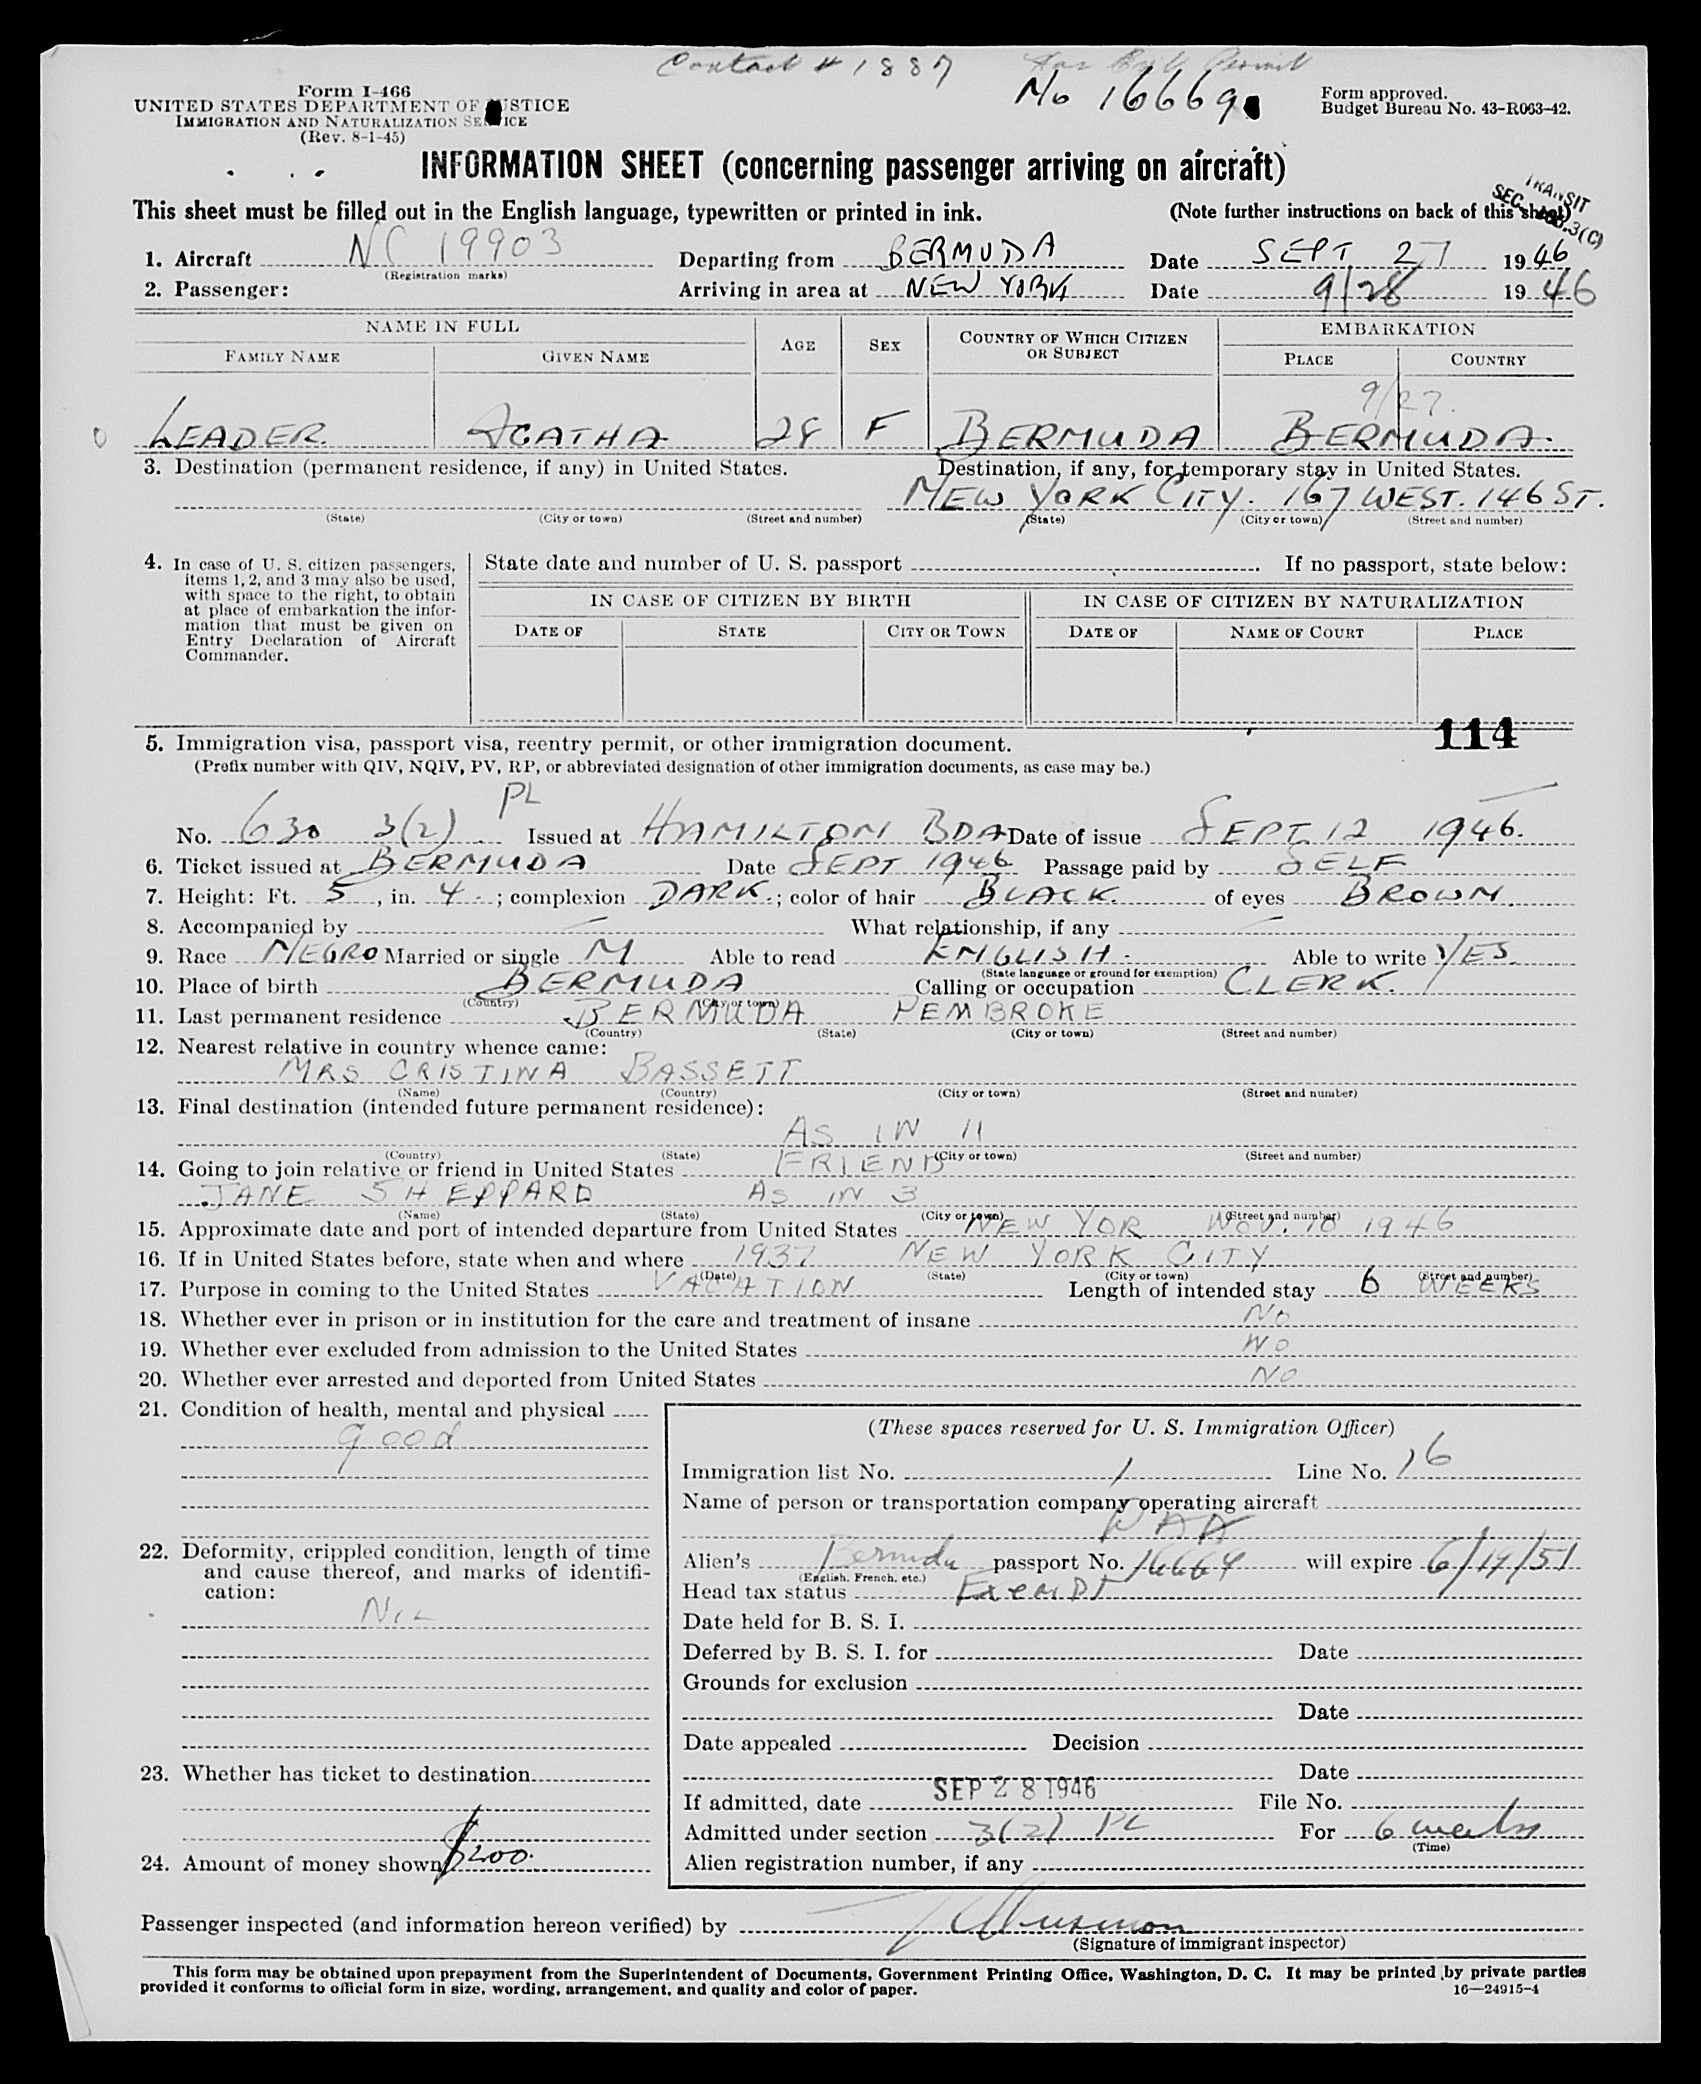 Contact # 1887
No 16669
Form I-466
UNITED STATES DEPARTMENT OF JUSTICE
IMMIGRATION AND NATURALIZATION SERVICE
(Rev. 8-1-45)
Form approved.
Budget Bureau No. 43-R063-42.
INFORMATION SHEET (concerning passenger arriving on aircraft)
This sheet must be filled out in the English language, typewritten or printed in ink. (Note further instructions on back of this sheet)
TRANSIT
SEC. 3(C)
1. Aircraft NC 19903 Departing from BERMUDA Date SEPT 27 1946
(Registration marks)
2. Passenger: Arriving in area at NEW YORK Date 9/28 1946
NAME IN FULL AGE SEX COUNTRY OF WHICH CITIZEN OR SUBJECT EMBARKATION
FAMILY NAME GIVEN NAME PLACE COUNTRY
9/27.
LEADER AGATHA 28 F BERMUDA BERMUDA.
3. Destination (permanent residence, if any) in United States. Destination, if any, for temporary stay in United States.
NEW YORK CITY. 167 WEST. 146 ST.
(State) (City or town) (Street and number) (State) (City or town) (Street and number)
4. In case of U. S. citizen passengers,
items 1, 2, and 3 may also be used,
with space to the right, to obtain
at place of embarkation the infor-
mation that must be given on
Entry Declaration of Aircraft
Commander.
State date and number of U. S. passport If no passport, state below:
IN CASE OF CITIZEN BY BIRTH IN CASE OF CITIZEN BY NATURALIZATION
DATE OF STATE CITY OR TOWN DATE OF NAME OF COURT PLACE
114
5. Immigration visa, passport visa, reentry permit, or other immigration document.
(Prefix number with QIV, NQIV, PV, RP, or abbreviated designation of other immigration documents, as case may be.)
PL
No. 630 3(2) Issued at HAMILTON BDA Date of issue SEPT. 12 1946.
6. Ticket issued at BERMUDA Date SEPT 1946 Passage paid by SELF
7. Height: Ft. 5, in. 4.; complexion DARK.; color of hair BLACK. of eyes BROWN.
8. Accompanied by — What relationship, if any —
9. Race NEGRO Married or single M Able to read ENGLISH. Able to write YES
(State language or ground for exemption)
10. Place of birth BERMUDA Calling or occupation CLERK.
(Country) (City or town)
11. Last permanent residence BERMUDA PEMBROKE
(Country) (State) (City or town) (Street and number)
12. Nearest relative in country whence came:
MRS CRISTINA BASSETT
(Name) (Country) (City or town) (Street and number)
13. Final destination (intended future permanent residence):
AS IN 11
(Country) (State) (City or town) (Street and number)
14. Going to join relative or friend in United States FRIEND
JANE SHEPPARD AS IN 3
(Name) (State) (City or town) (Street and number)
15. Approximate date and port of intended departure from United States NEW YOR NOV. 10 1946
16. If in United States before, state when and where 1937 NEW YORK CITY
(Date) (State) (City or town) (Street and number)
17. Purpose in coming to the United States VACATION Length of intended stay 6 WEEKS
18. Whether ever in prison or in institution for the care and treatment of insane NO
19. Whether ever excluded from admission to the United States NO
20. Whether ever arrested and deported from United States NO
21. Condition of health, mental and physical
good
22. Deformity, crippled condition, length of time
and cause thereof, and marks of identifi-
cation:
NIL
23. Whether has ticket to destination
24. Amount of money shown $200.
(These spaces reserved for U. S. Immigration Officer)
Immigration list No. 1 Line No. 16
Name of person or transportation company operating aircraft
PAA
Alien's Bermuda passport No. 16669 will expire 6/19/51
(English, French, etc.)
Head tax status Exempt
Date held for B. S. I.
Deferred by B. S. I. for Date
Grounds for exclusion
Date
Date appealed Decision
Date
If admitted, date SEP 28 1946 File No.
Admitted under section 3(2) PL For 6 weeks
(Time)
Alien registration number, if any
Passenger inspected (and information hereon verified) by
(Signature of immigrant inspector)
This form may be obtained upon prepayment from the Superintendent of Documents, Government Printing Office, Washington, D. C. It may be printed by private parties
provided it conforms to official form in size, wording, arrangement, and quality and color of paper.
16—24915-4